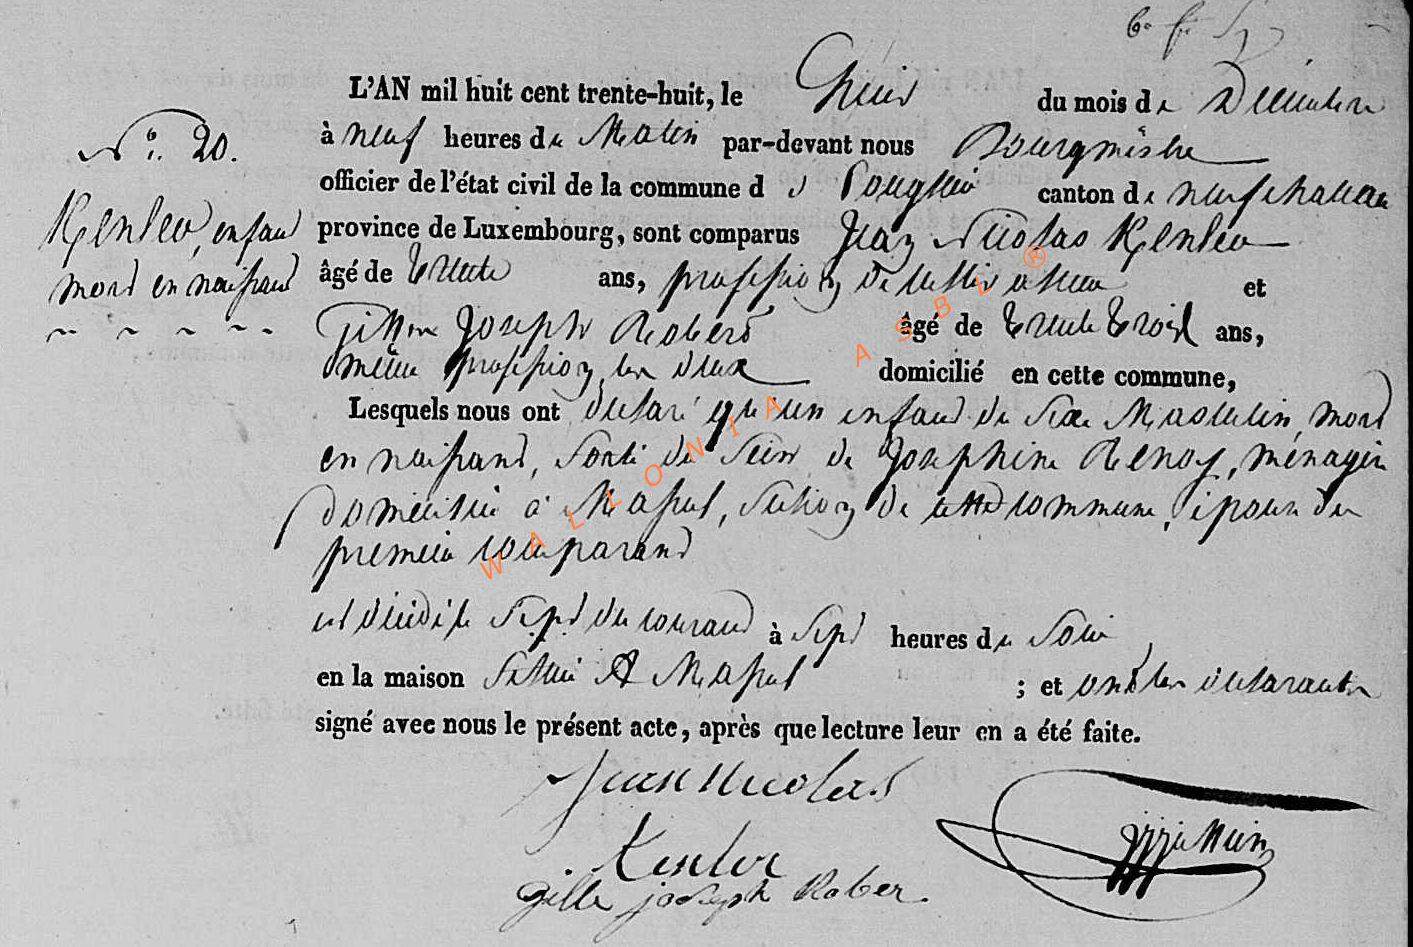 L'AN mil huit cent trente-huit, le huit du mois de Décembre
N°. 20.
à neuf heures du Matin par-devant nous Bourgmestre
officier de l'état civil de la commune d canton de neufchateau
Kenler, enfant
province de Luxembourg, sont comparus Jean Nicolas Kenler
mord en naissant
âgé de trente ans, profession de cultivateur et
Gille Joseph Robert âgé de trente trois ans,
même profession, les deux domicilié en cette commune,
Lesquels nous ont déclaré qu'un enfant du sexe Masculin, mord
en naissant, sorti du sein de Josephine Renoy, ménagère
domiciliée à Massul, section de cette commune, épouse du
premier comparand
est décédé le sept du courand à sept heures du soir
en la maison sittuée A Massul ; et ont les déclarants
signé avec nous le présent acte, après que lecture leur en a été faite.
Jean Nicolas
Kenler
gille joseph Rober.
WALLONIA ASBL ®